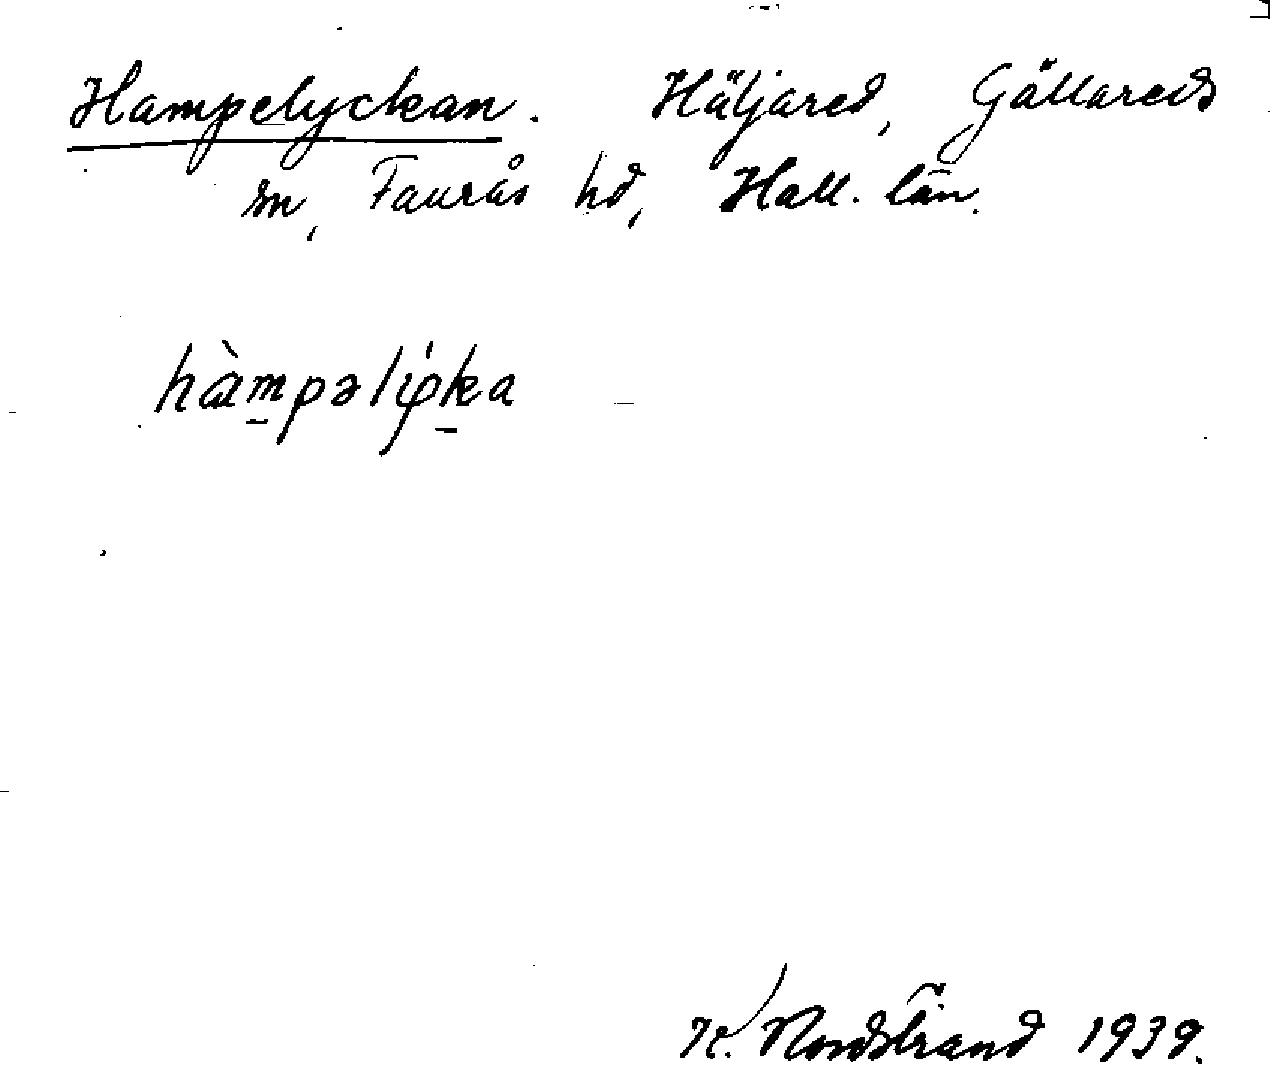 Hampelyckan. Häljared, Gällareds
sn, Faurås hd, Hall. län.
hàmpəlýka
K. Nordstrand 1939.